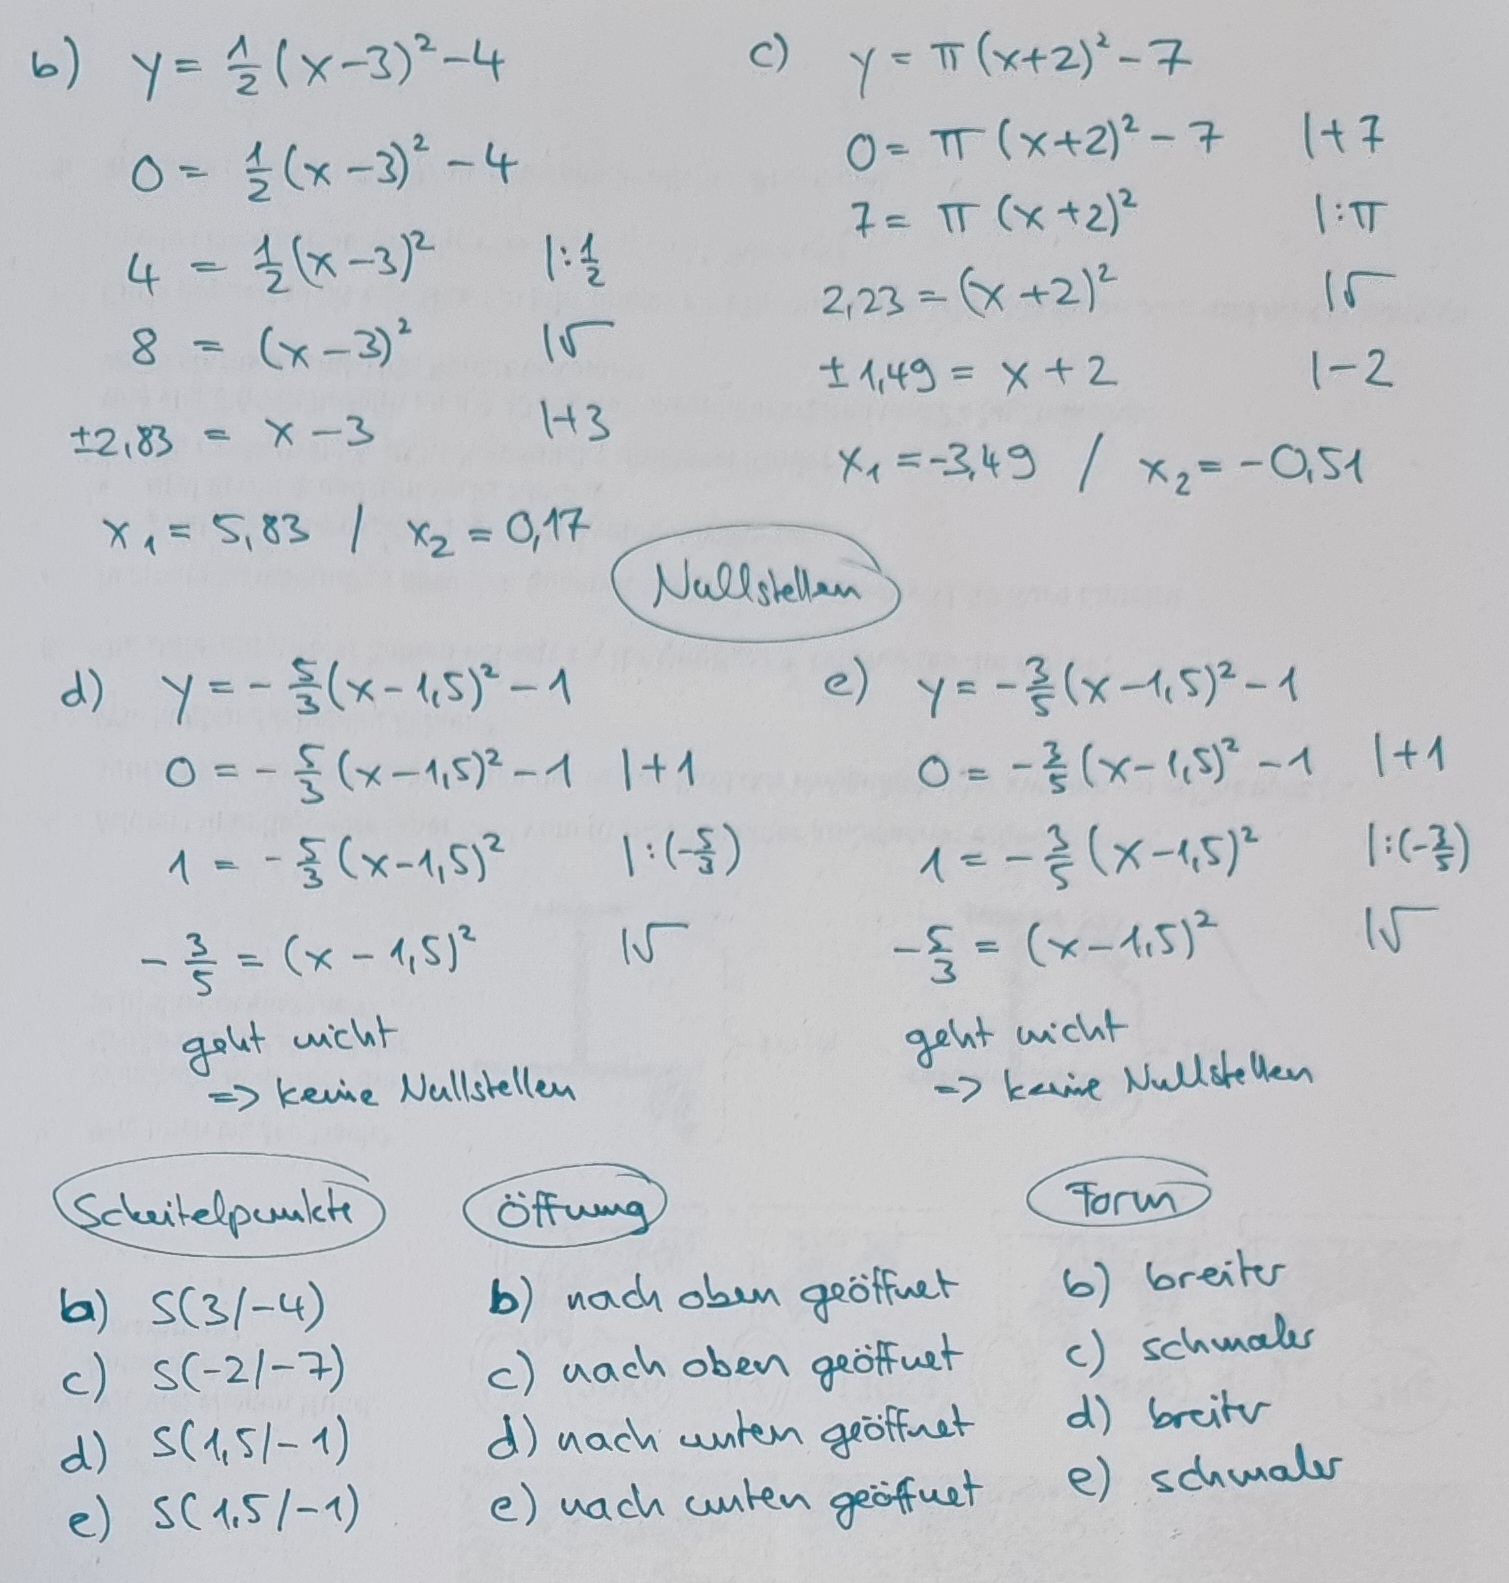 b) y = 1/2 (x-3)² -4
0 = 1/2 (x-3)² -4
4 = 1/2 (x-3)² |: 1/2
8 = (x-3)² |√
±2,83 = x-3 |+3
x₁ = 5,83 / x₂ = 0,17
c) y = π (x+2)² - 7
0 = π (x+2)² - 7 |+7
7 = π (x+2)² |:π
2,23 = (x+2)² |√
±1,49 = x+2 |-2
x₁ = -3,49 / x₂ = -0,51
Nullstellen
d) y = - 5/3 (x-1,5)² -1
0 = - 5/3 (x-1,5)² -1 |+1
1 = - 5/3 (x-1,5)² |:(- 5/3)
- 3/5 = (x-1,5)² |√
geht nicht
=> keine Nullstellen
e) y = - 3/5 (x-1,5)² -1
0 = - 3/5 (x-1,5)² -1 |+1
1 = - 3/5 (x-1,5)² |:(- 3/5)
- 5/3 = (x-1,5)² |√
geht nicht
=> keine Nullstellen
Scheitelpunkte
b) S(3/-4)
c) S(-2/-7)
d) S(1,5/-1)
e) S(1,5/-1)
Öffnung
b) nach oben geöffnet
c) nach oben geöffnet
d) nach unten geöffnet
e) nach unten geöffnet
Form
b) breiter
c) schmaler
d) breiter
e) schmaler